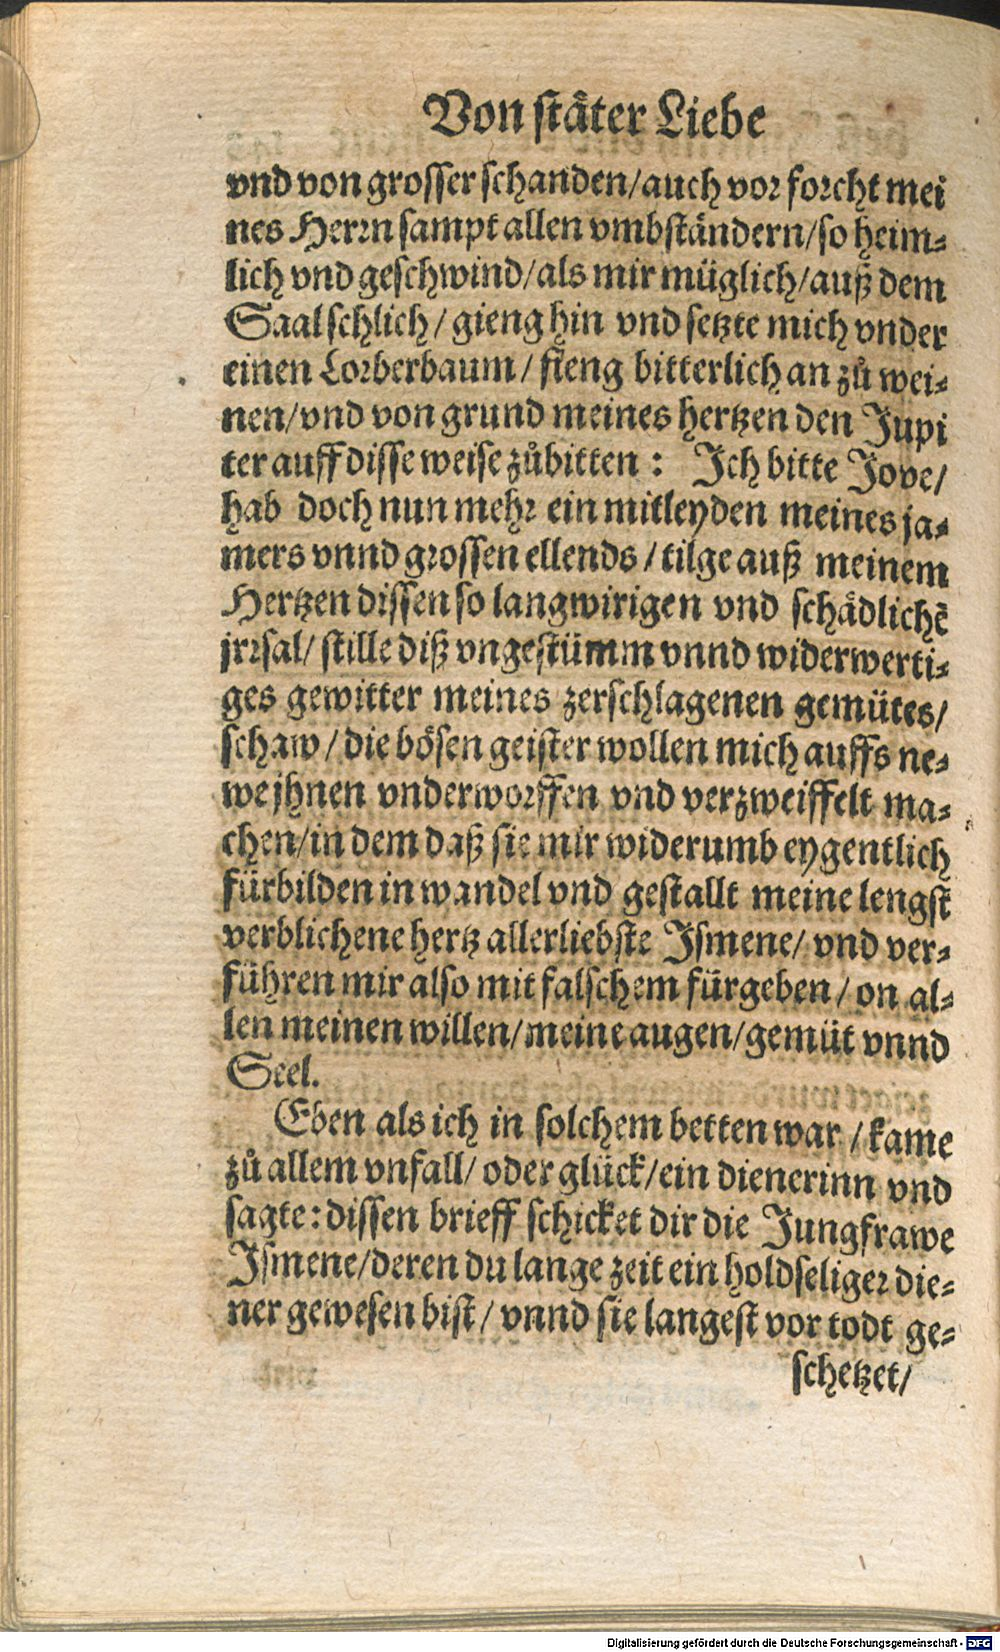 Von stäter Liebe
vnd von grosser schanden/auch vor forcht mei
nes Herrn sampt allen vmbständern/so heim-
lich vnd geschwind/als mir müglich/auß dem
Saal schlich/ gieng hin vnd setzte mich vnder
einen Lorberbaum/ fieng bitterlich an zů wei-
nen/vnd von grund meines hertzen den Jupi
ter auff disse weise zůbitten: Ich bitte Jove/
hab doch nun mehr ein mitleyden meines ja-
mers vnnd grossen ellends/tilge auß meinem
Hertzen dissen so langwirigen vnd schädlichẽ
jrrsal/ stille diß vngestümm vnnd widerwerti-
ges gewitter meines zerschlagenen gemütes/
schaw/die bösen geister wollen mich auffs ne-
we jhnen vnderworffen vnd verzweiffelt ma-
chen/in dem daß sie mir widerumb eygentlich
fürbilden in wandel vnd gestallt meine lengst
verblichene hertz allerliebste Ismene/ vnd ver-
führen mir also mit falschem fürgeben/ on al-
len meinen willen/meine augen/gemüt vnnd
Seel.
Eben als ich in solchem betten war/kame
zů allem vnfall/ oder glück/ein dienerinn vnd
sagte: dissen brieff schicket dir die Jungfrawe
Ismene/deren du lange zeit ein holdseliger die-
ner gewesen bist/ vnnd sie langest vor todt ge-
schetzet/
Digitalisierung gefördert durch die Deutsche Forschungsgemeinschaft - DFG